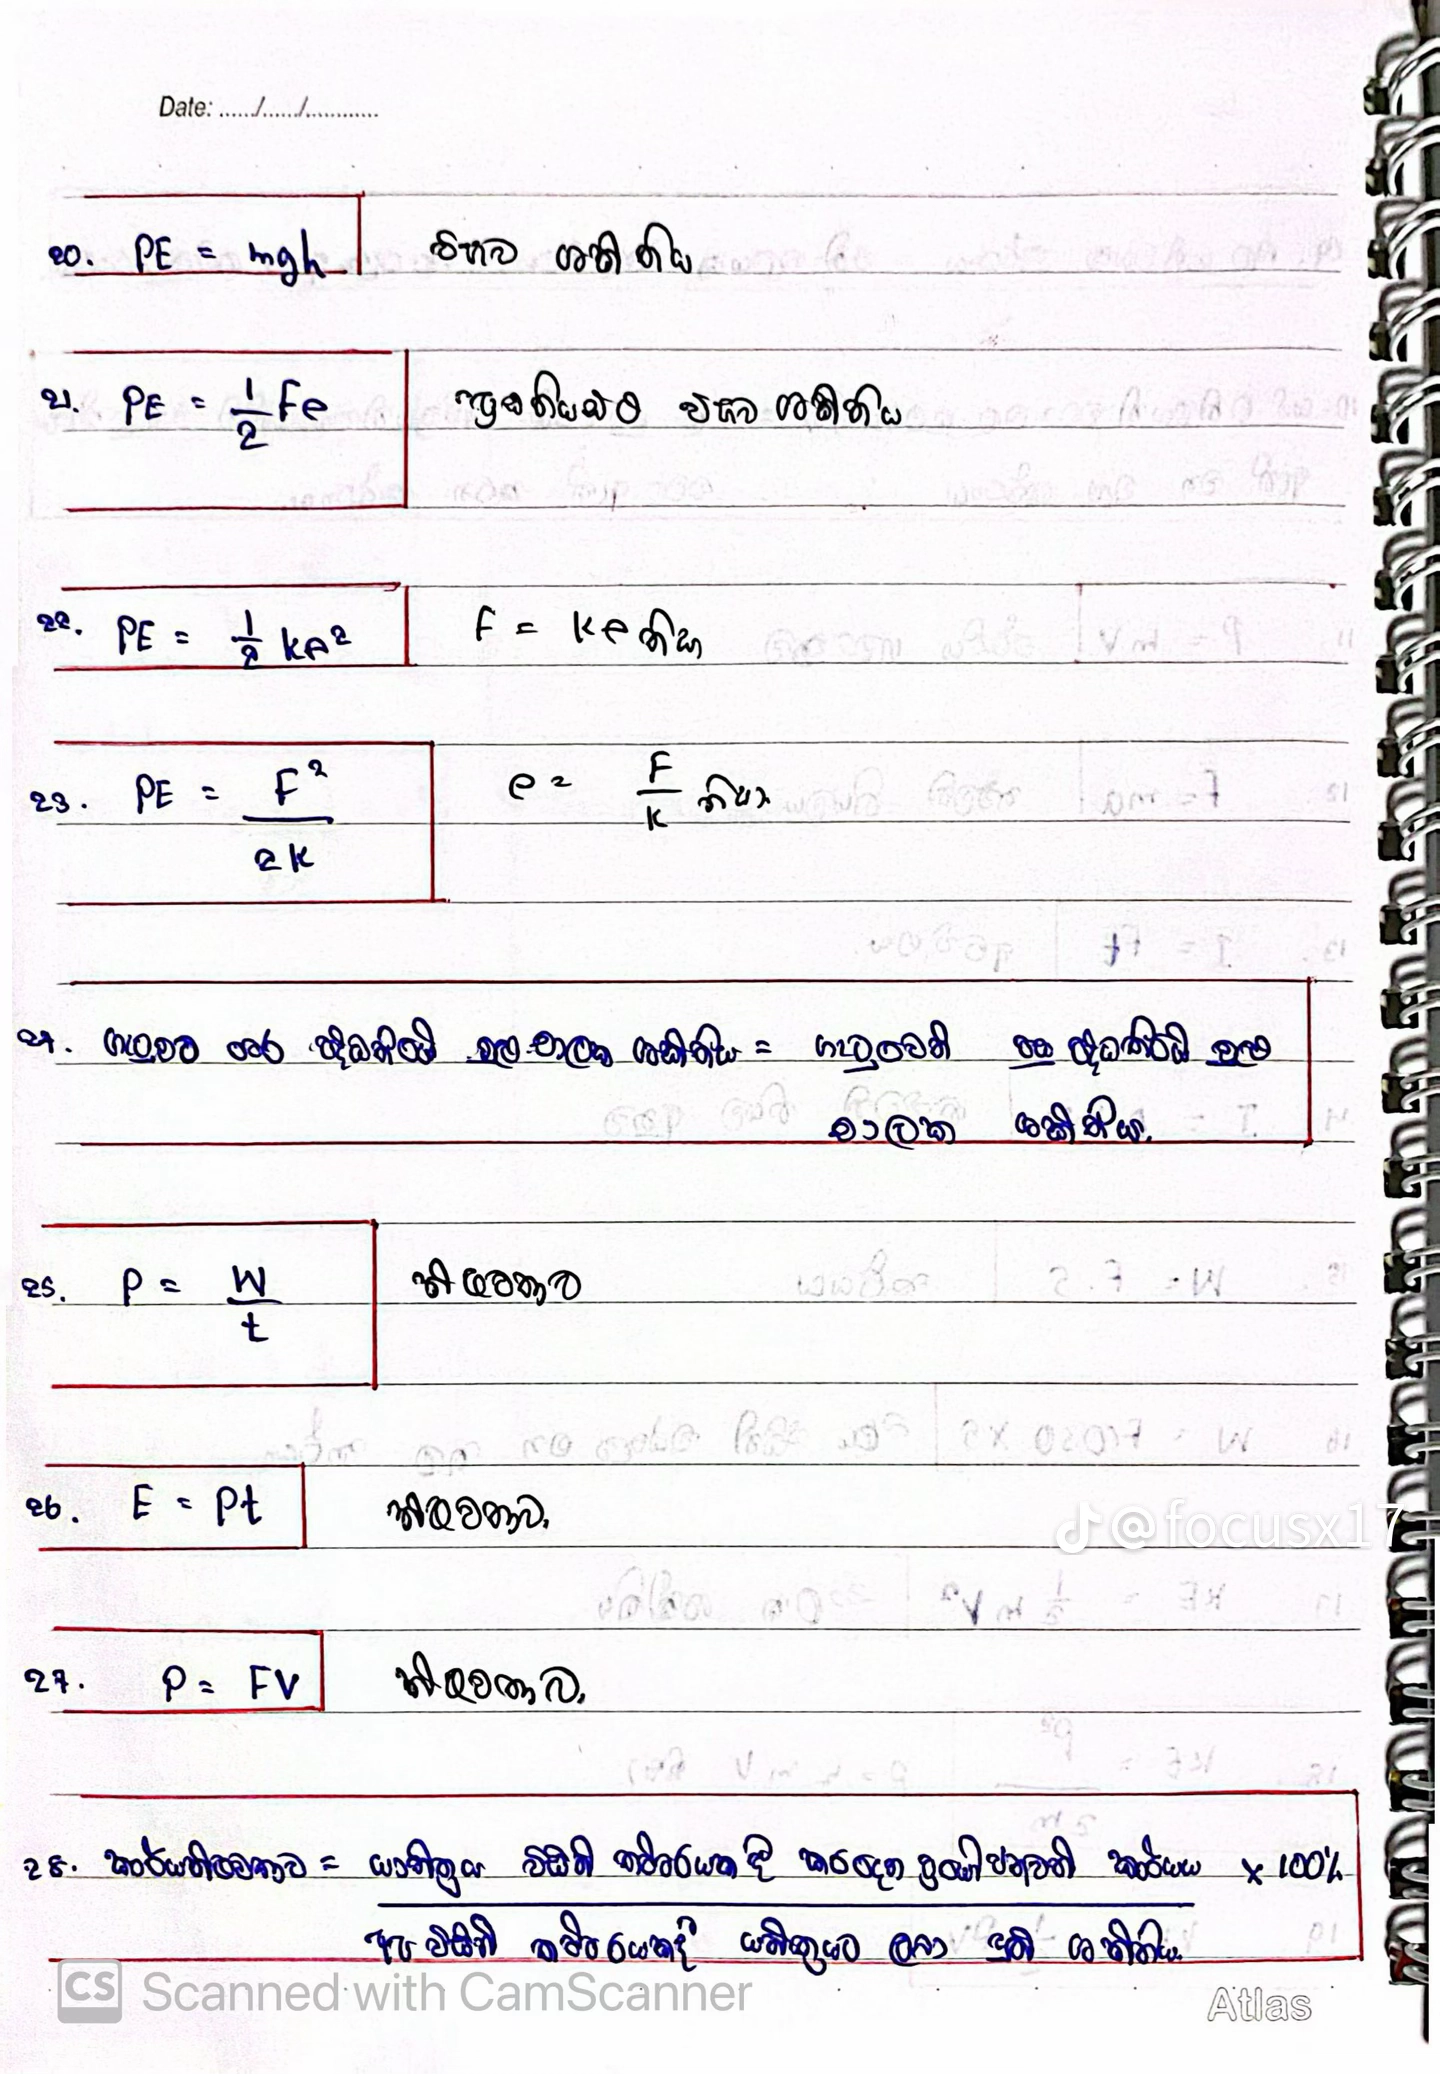 Date: ...../...../............
20. PE = mgh විභව ශක්තිය
21. PE = 1/2 Fe ප්‍රත්‍යස්ථ විභව ශක්තිය
22. PE = 1/2 ke² F = ke නිසා
23. PE = F²/2k e = F/k නිසා
24. ගැටුමට පෙර පද්ධතියේ මුළු චාලක ශක්තිය = ගැටුමෙන් පසු පද්ධතියේ මුළු
චාලක ශක්තිය.
25. P = W/t ක්ෂමතාව
26. E = Pt ක්ෂමතාව.
27. P = FV ක්ෂමතාව.
28. කාර්යක්ෂමතාව = යන්ත්‍රය විසින් තත්පරයක දී කරදෙන ප්‍රයෝජනවත් කාර්යය × 100%
අප විසින් තත්පරයකදී යන්ත්‍රයට ලබා දුන් ශක්තිය.
@focusx17
CS Scanned with CamScanner
Atlas